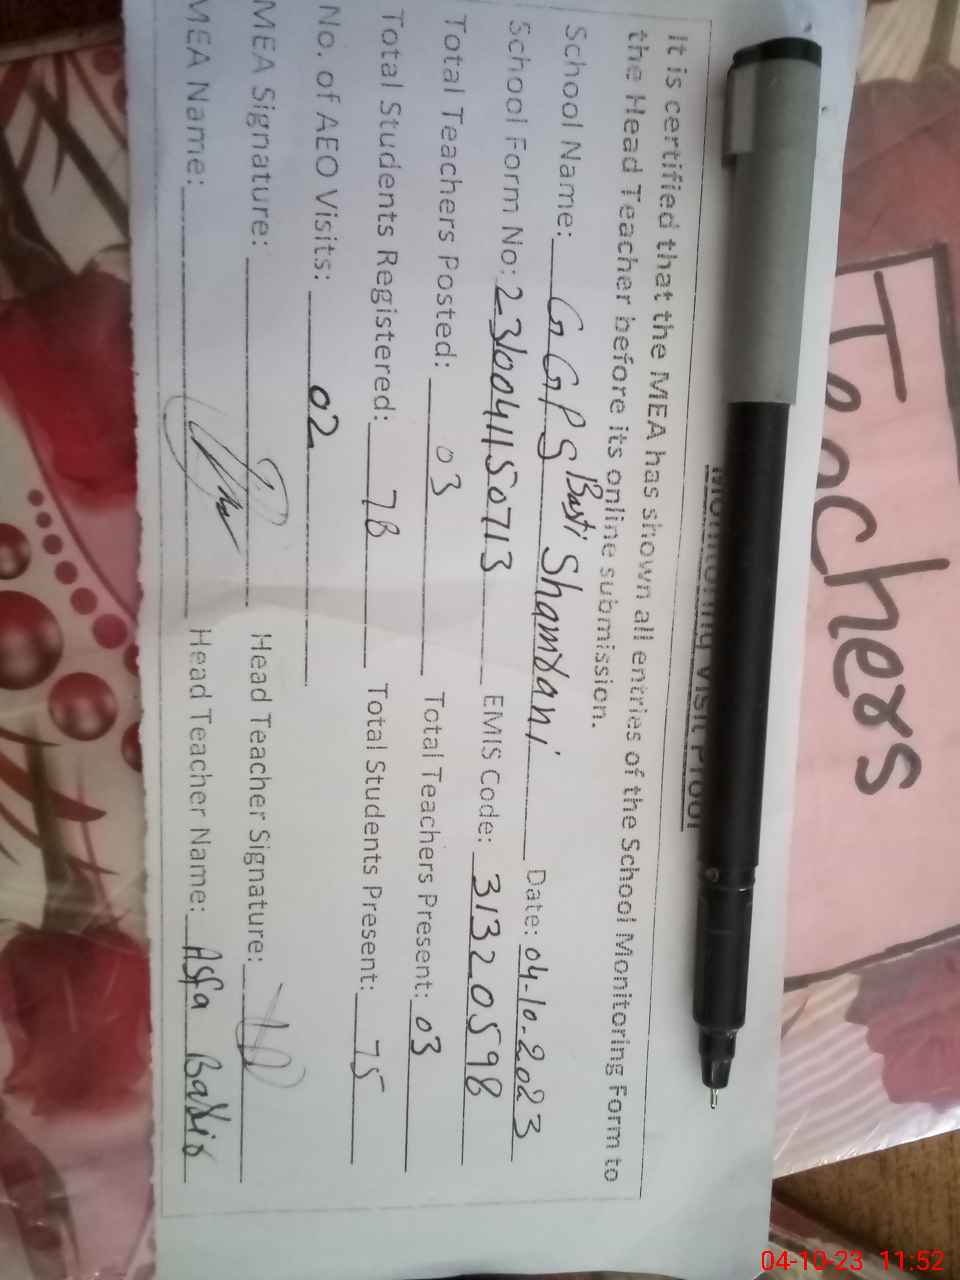 Teachers
Monitoring Visit Proof
It is certified that the MEA has shown all entries of the School Monitoring Form to
the Head Teacher before its online submission.
School Name: GGPS Basti Shamrani Date: 04-10-2023
School Form No: 2310041150713 EMIS Code: 31320598
Total Teachers Posted: 03 Total Teachers Present: 03
Total Students Registered: 78 Total Students Present: 75
No. of AEO Visits: 02
MEA Signature: Head Teacher Signature:
MEA Name: Head Teacher Name: Asfa Bashir
04-10-23 11:52